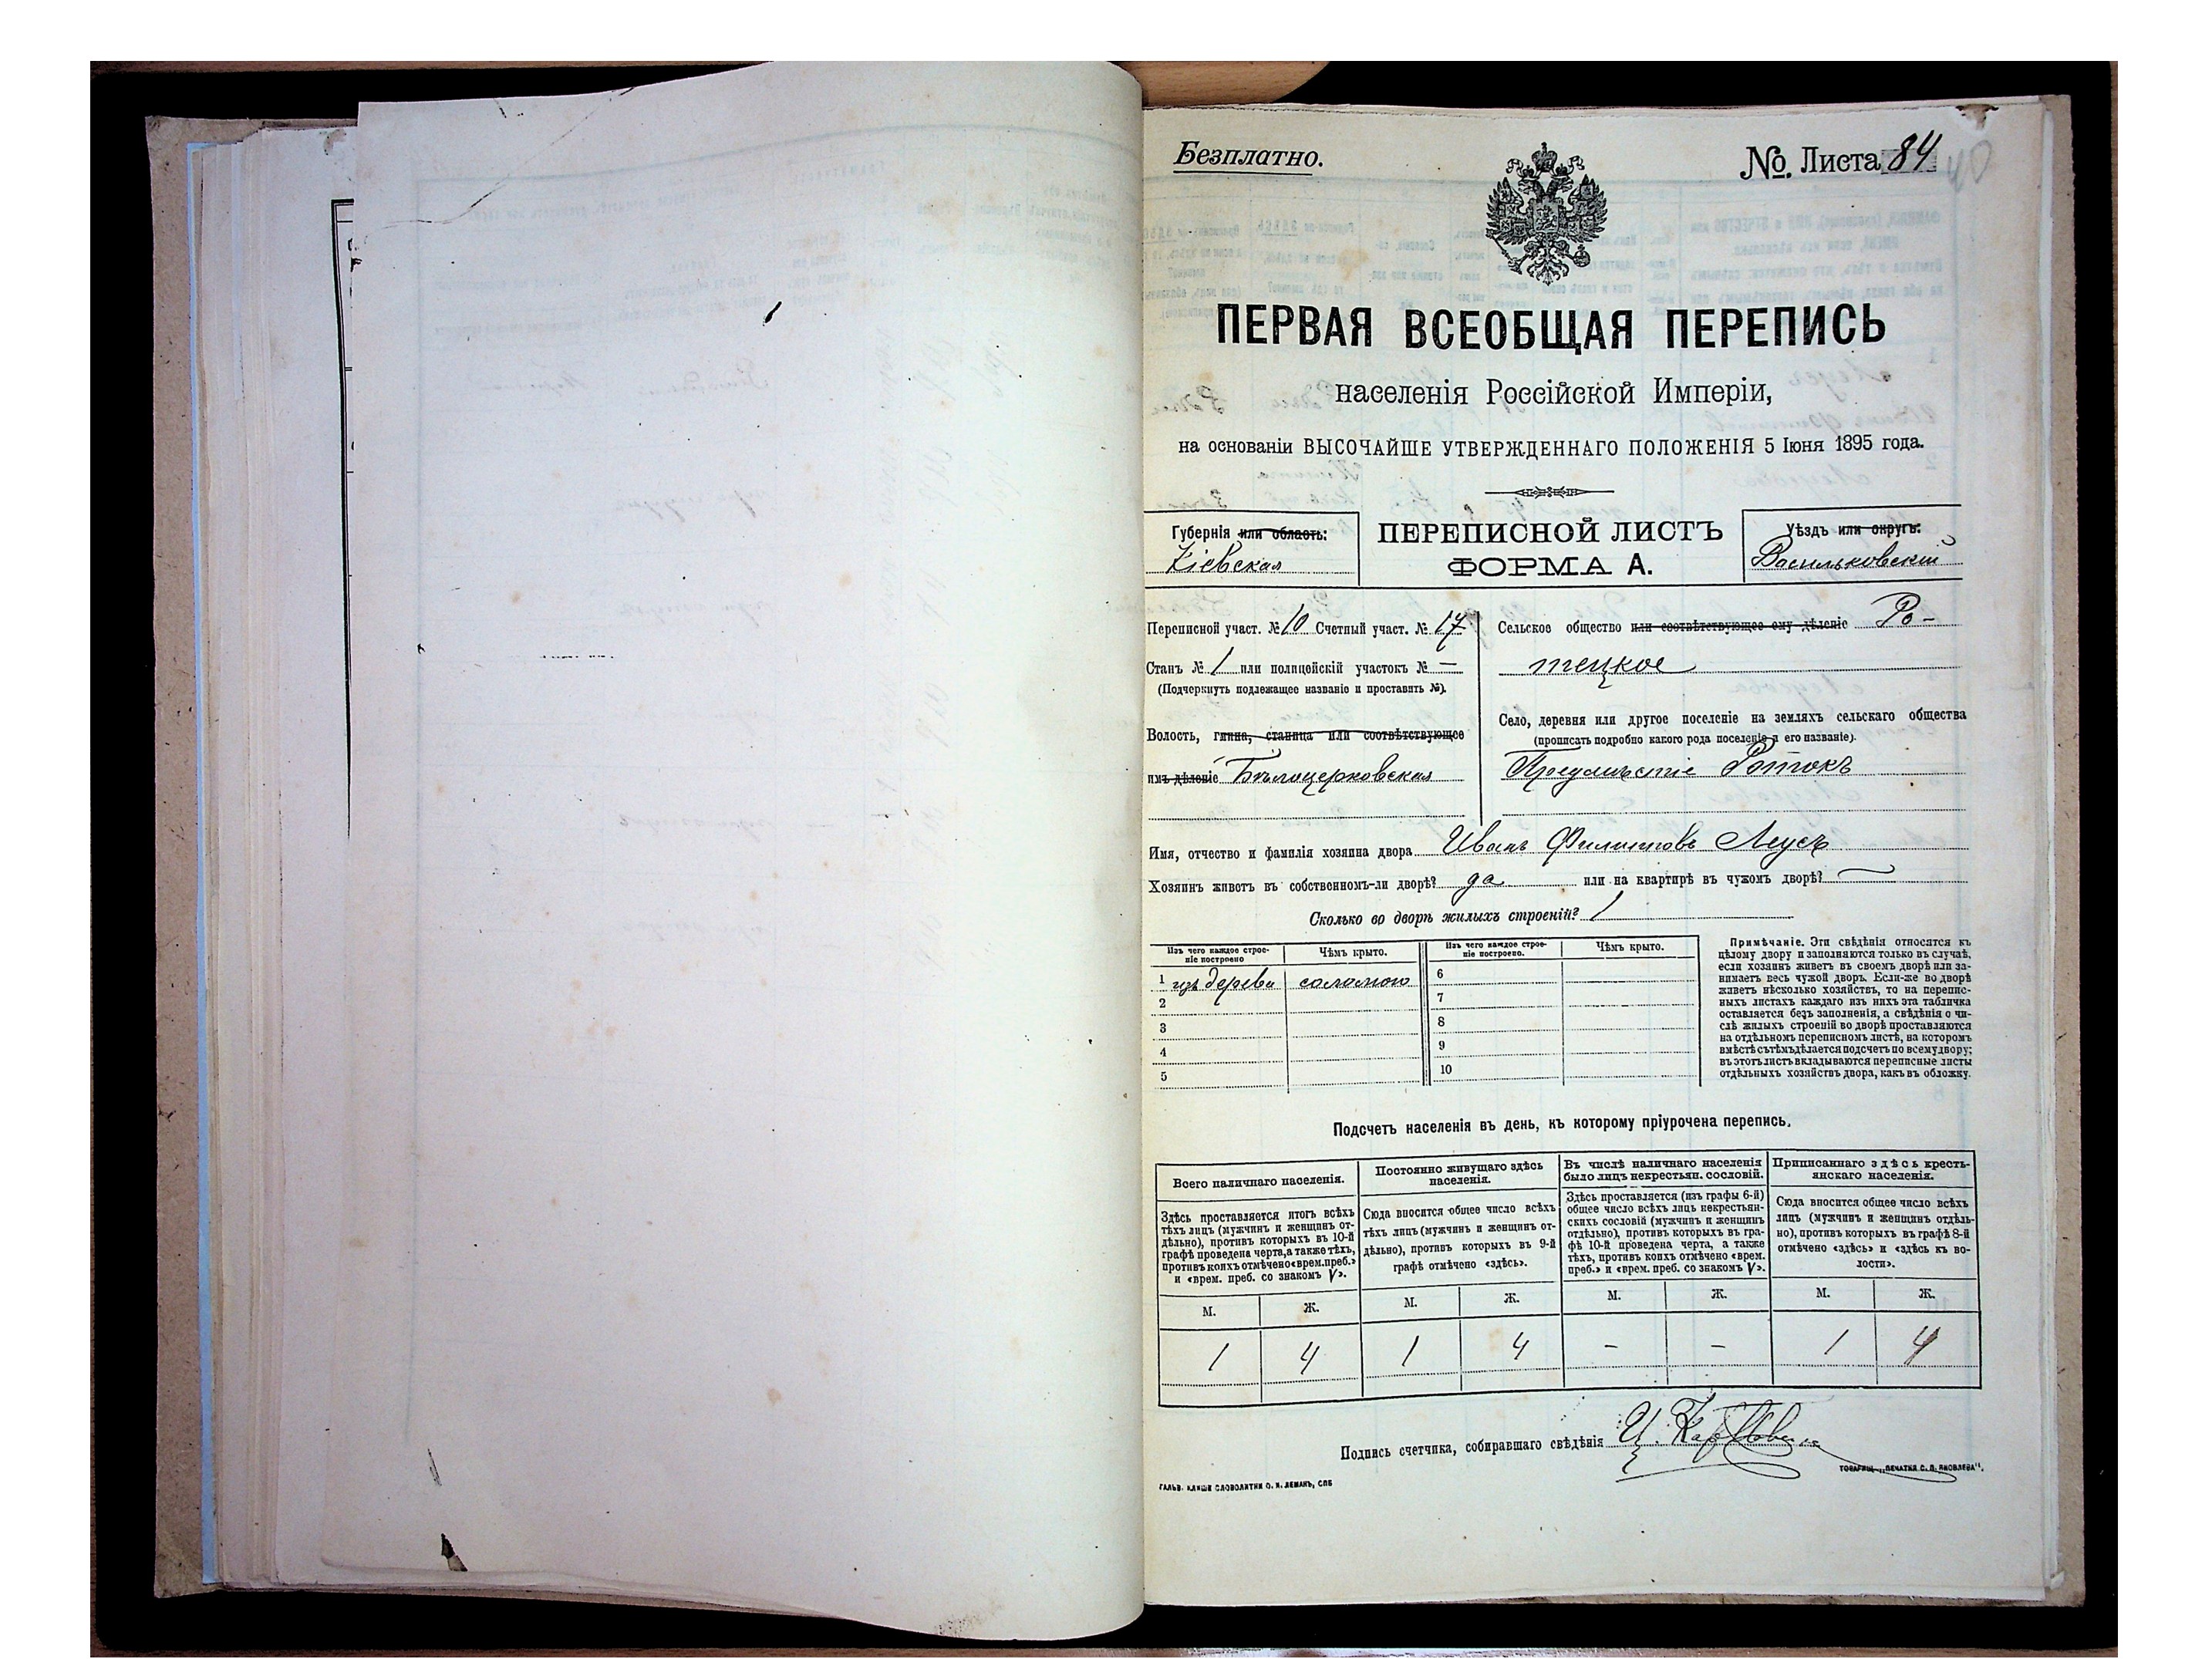 Безплатно.
№ Листа 84
ПЕРВАЯ ВСЕОБЩАЯ ПЕРЕПИСЬ
населенія Россійской Имперіи,
на основаніи ВЫСОЧАЙШЕ УТВЕРЖДЕННАГО ПОЛОЖЕНІЯ 5 Іюня 1895 года.
Губернія или область:
Кіевская
ПЕРЕПИСНОЙ ЛИСТЪ
ФОРМА А.
Уѣздъ или округъ:
Васильковскій
Переписной участ. № 10 Счетный участ. № 17
Станъ № 1 или полицейскій участокъ № —
(Подчеркнуть подлежащее названіе и проставить №).
Волость, гмина, станица или соотвѣтствующее
имъ дѣленіе Бѣлоцерковская
Сельское общество или соотвѣтствующее ему дѣленіе Ро-
тецкое
Село, деревня или другое поселеніе на земляхъ сельскаго общества
(прописать подробно какого рода поселеніе и его названіе).
Предмѣстіе Ротокъ
Имя, отчество и фамилія хозяина двора Иванъ Филиповъ Леусъ
Хозяинъ живетъ въ собственномъ-ли дворѣ? да или на квартирѣ въ чужомъ дворѣ? —
Сколько во дворѣ жилыхъ строеній? 1
Изъ чего каждое строе-
ніе построено
Чѣмъ крыто.
Изъ чего каждое строе-
ніе построено.
Чѣмъ крыто.
1 изъ дерева соломою 6
2 7
3 8
4 9
5 10
Примѣчаніе. Эти свѣдѣнія относятся къ
цѣлому двору и заполняются только въ случаѣ,
если хозяинъ живетъ въ своемъ дворѣ или за-
нимаетъ весь чужой дворъ. Если-же во дворѣ
живетъ нѣсколько хозяйствъ, то на перепис-
ныхъ листахъ каждаго изъ нихъ эта табличка
оставляется безъ заполненія, а свѣдѣнія о чи-
слѣ жилыхъ строеній во дворѣ проставляются
на отдѣльномъ переписномъ листѣ, на которомъ
вмѣстѣ съ тѣмъ дѣлается подсчетъ по всему двору;
въ этотъ листъ вкладываются переписные листы
отдѣльныхъ хозяйствъ двора, какъ въ обложку.
Подсчетъ населенія въ день, къ которому пріурочена перепись.
Всего наличнаго населенія.
Здѣсь проставляется итогъ всѣхъ
тѣхъ лицъ (мужчинъ и женщинъ от-
дѣльно), противъ которыхъ въ 10-й
графѣ проведена черта, а также тѣхъ,
противъ коихъ отмѣчено «врем. преб.»
и «врем. преб. со знакомъ V».
Постоянно живущаго здѣсь
населенія.
Сюда вносится общее число всѣхъ
тѣхъ лицъ (мужчинъ и женщинъ от-
дѣльно), противъ которыхъ въ 9-й
графѣ отмѣчено «здѣсь».
Въ числѣ наличнаго населенія
было лицъ некрестьян. сословій.
Здѣсь проставляется (изъ графы 6-й)
общее число всѣхъ лицъ некрестьян-
скихъ сословій (мужчинъ и женщинъ
отдѣльно), противъ которыхъ въ гра-
фѣ 10-й проведена черта, а также
тѣхъ, противъ коихъ отмѣчено «врем.
преб.» и «врем. преб. со знакомъ V».
Приписаннаго здѣсь кресть-
янскаго населенія.
Сюда вносится общее число всѣхъ
лицъ (мужчинъ и женщинъ отдѣль-
но), противъ которыхъ въ графѣ 8-й
отмѣчено «здѣсь» и «здѣсь къ во-
лости».
М. Ж. М. Ж. М. Ж. М. Ж.
1 4 1 4 - - 1 4
Подпись счетчика, собиравшаго свѣдѣнія
ГАЛЬВ. КЛИШЕ СЛОВОЛИТНИ О. И. ЛЕМАНЪ, СПБ
ТОВАРИЩ. „ПЕЧАТНЯ С. П. ЯКОВЛЕВА".